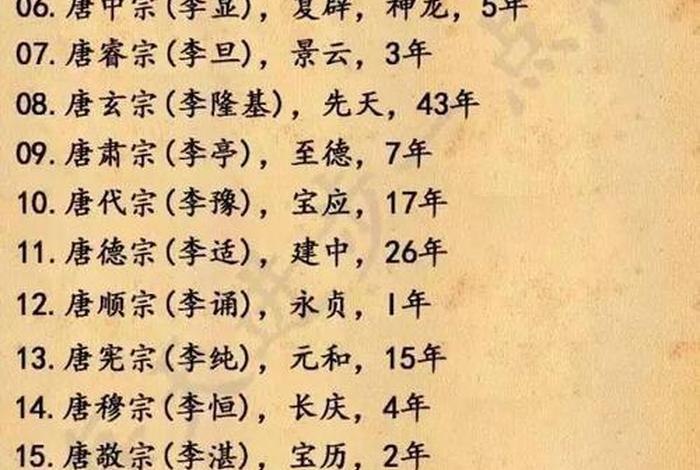 06.唐中宗(李显)，复辟，神龙，5年
07.唐睿宗(李旦)，景云，3年
08.唐玄宗(李隆基)，先天，43年
09.唐肃宗(李亭)，至德，7年
10.唐代宗(李豫)，宝应，17年
11.唐德宗(李适)，建中，26年
12.唐顺宗(李诵)，永贞，1年
13.唐宪宗(李纯)，元和，15年
14.唐穆宗(李恒)，长庆，4年
15.唐敬宗(李湛)，宝历，2年